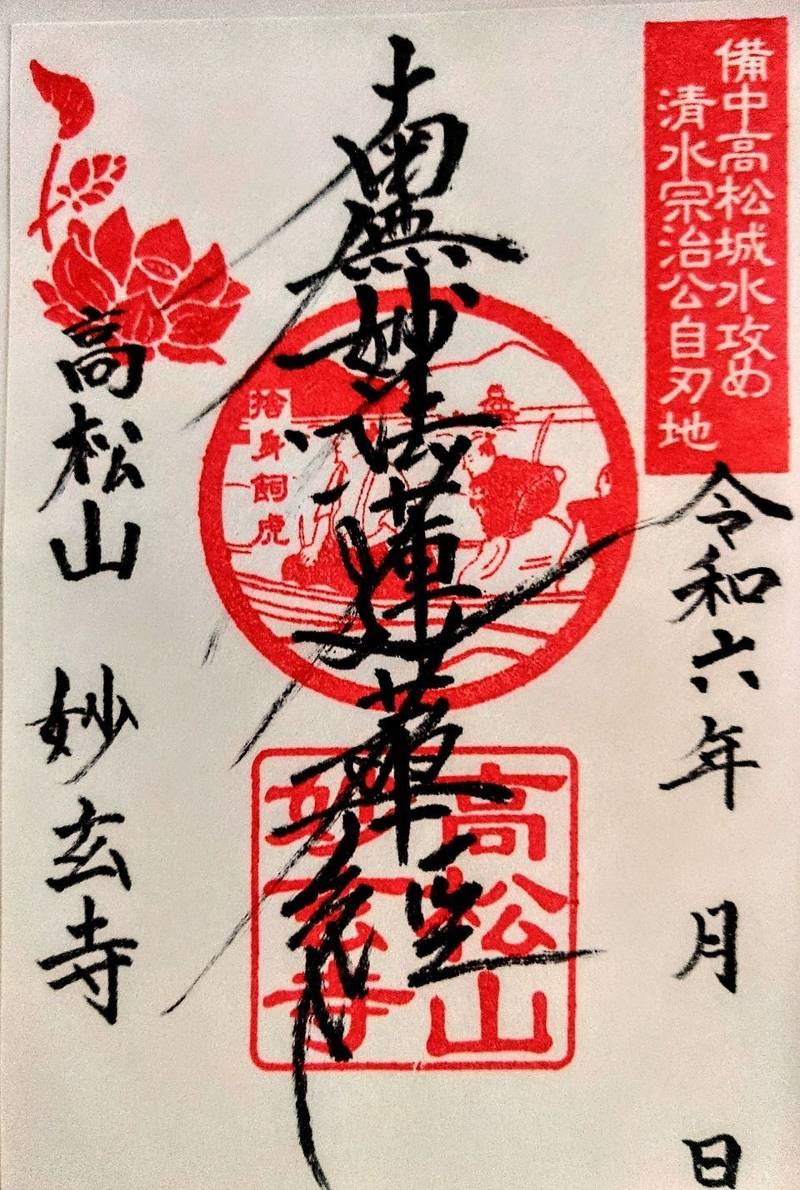 備中高松城水攻め
清水宗治公自刃地
令和六年 月 日
南無妙法蓮華経
捨身飼虎
高松山
妙玄寺
高松山 妙玄寺